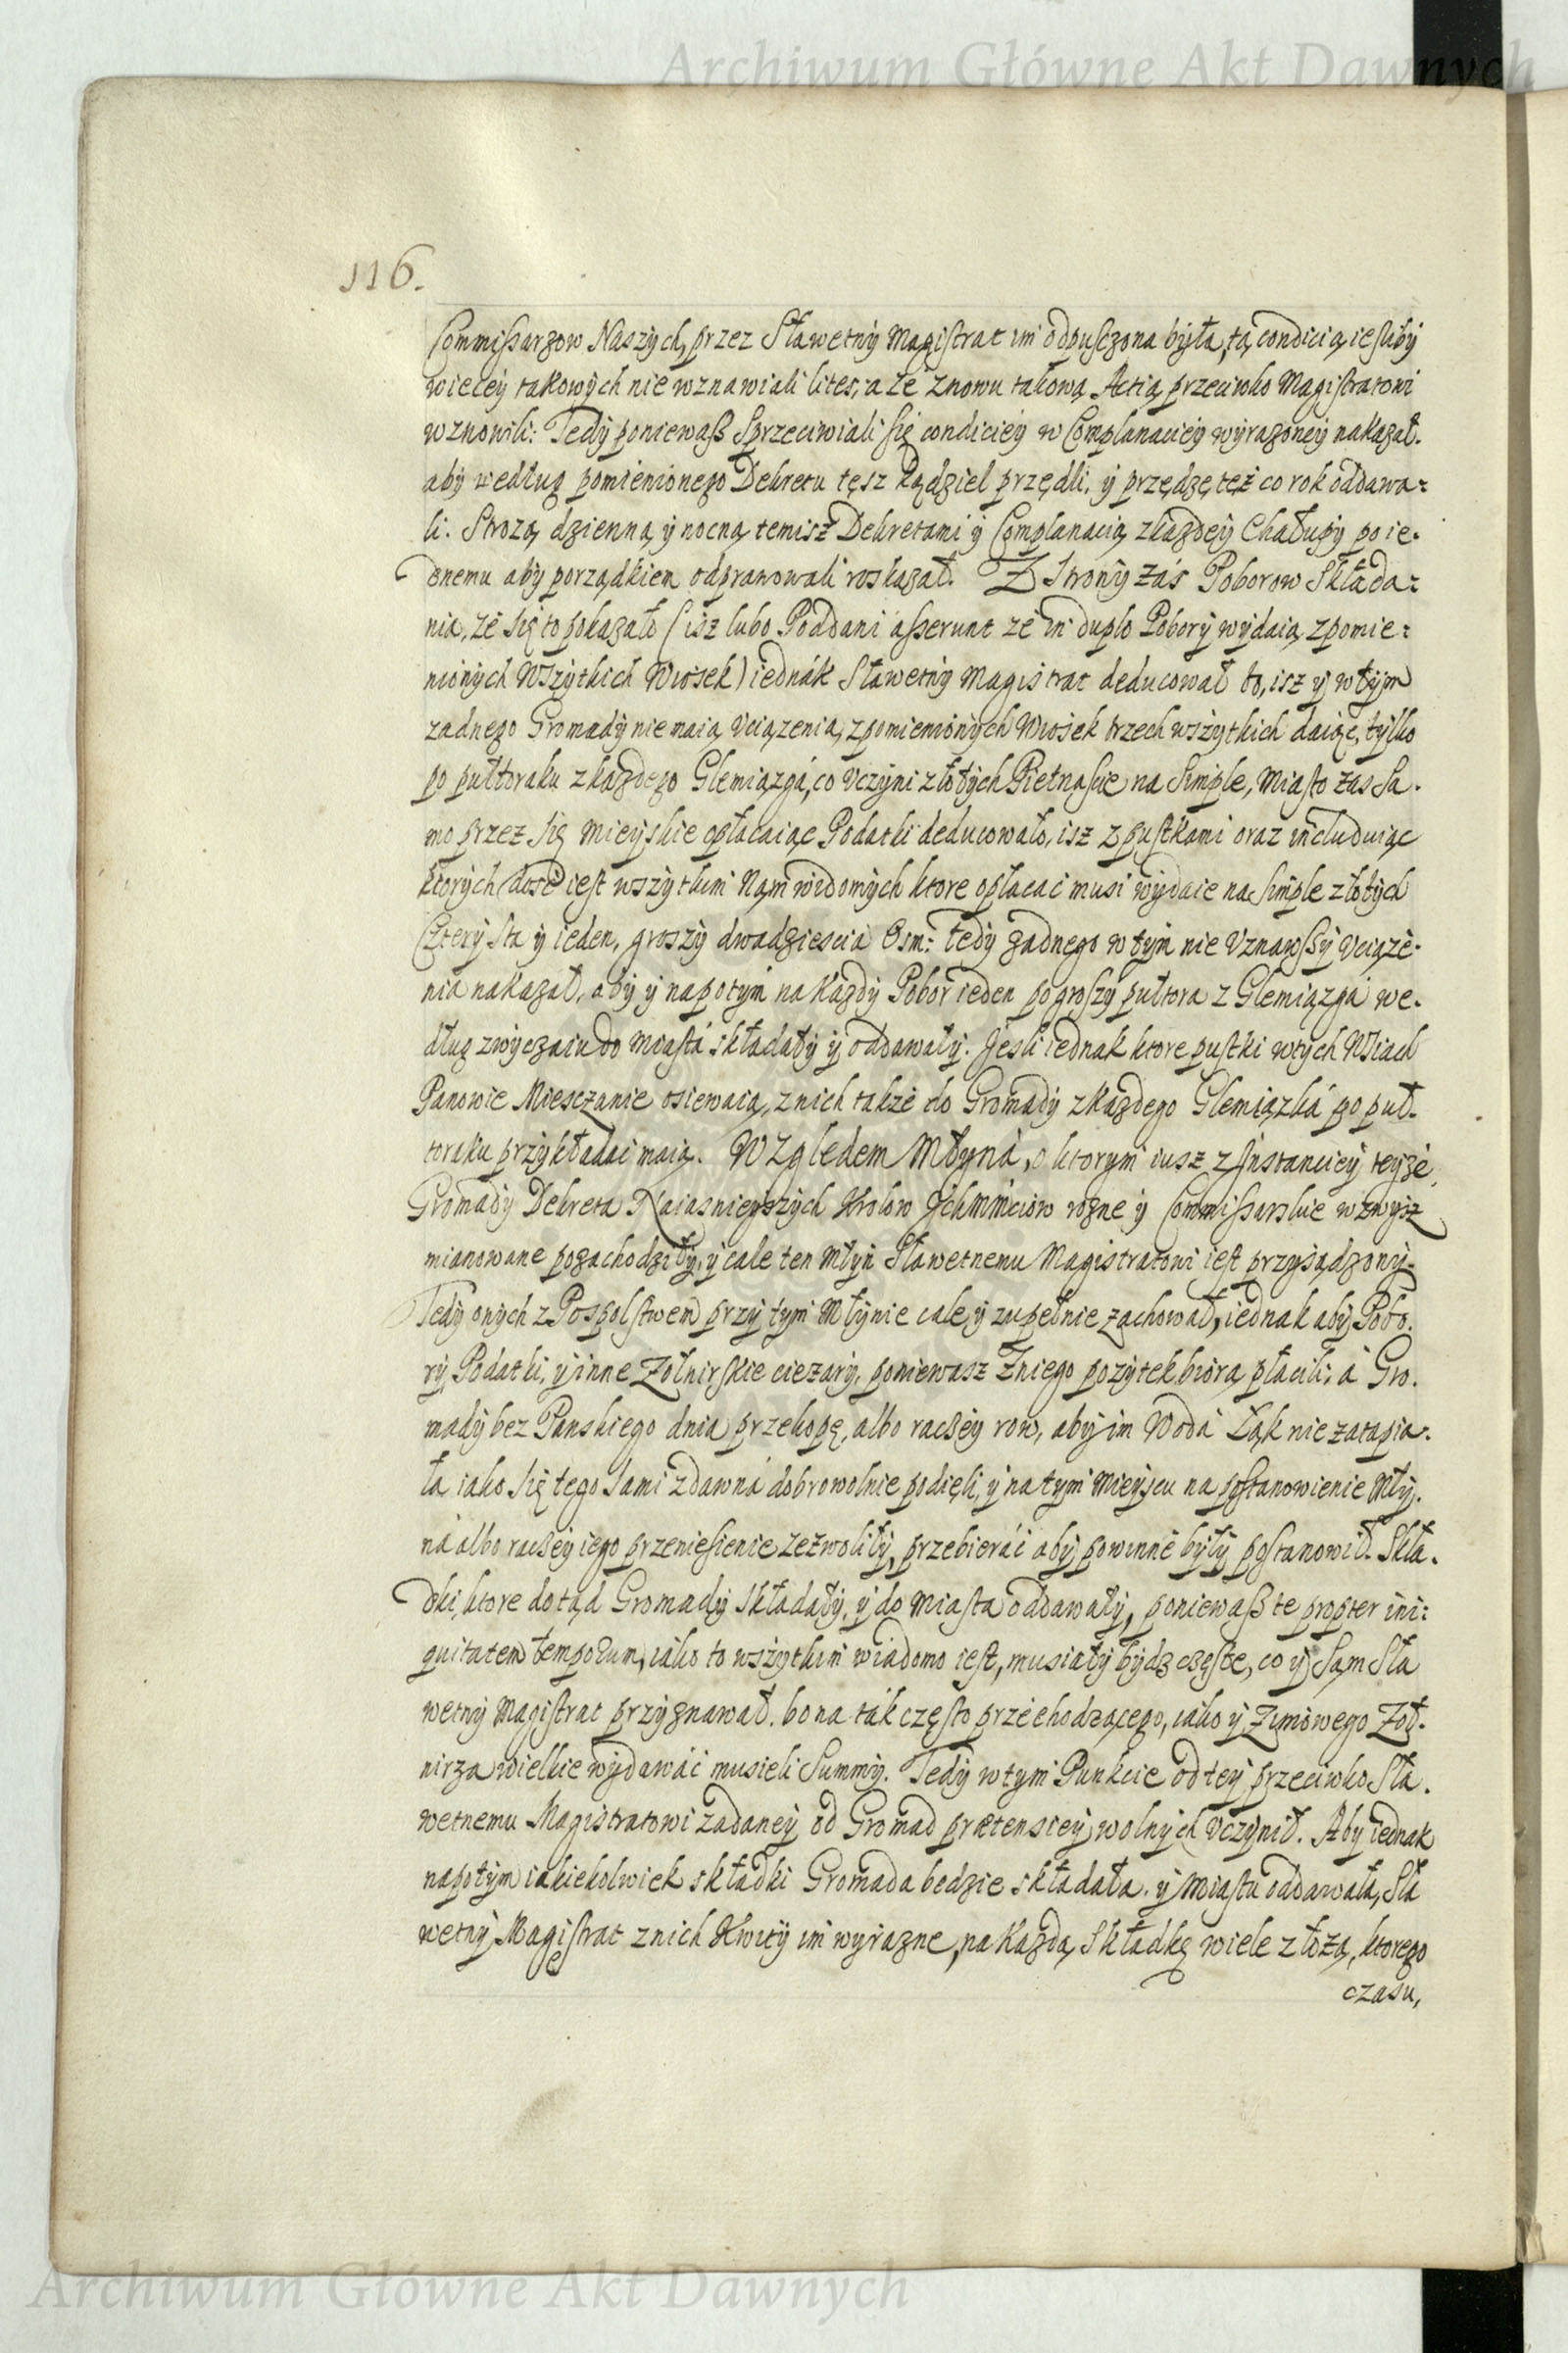 Archiwum Główne Akt Dawnych
116.
Commissarzow Naszych, przez Sławetny Magistrat im odpusczona była, tą condicią iesliby
wiecey takowych nie wznawiali lites; a że znowu takową Actią przeciwko Magistratowi
wznowili: Tedy poniewasz sprzeciwiali się condiciey w Complanaciey wyrazoney nakazał.
aby według pomienionego Dekretu tęsz kądziel przędli, y przędzę też co rok oddawa:
li. Strozą dzienną y nocną temisz Dekretami y Complanacią zkazdey Chałupy po ie.
dnemu aby porządkiem odprawowali roskazał. Z Strony zaś Poborow składa:
nia, że się to pokazało (isz lubo Poddani asserunt ze in duplo Pobory wydaią zpomie:
nionych Wszytkich Wiosek) iednák Sławetny Magistrat deducował to, isz y w tym
zadnego Gromady nie maią Vciązenia, zpomienionych Wiosek trzech wszytkich daiąc, tylko
po pułtoraku zkazdego Glemiązgá, co Vczyni złotych Pietnascie na Simple, Miasto zas Sa.
mo przez się Mieyskie opłacaiąc Podatki deducowało, isz z pustkami oraz includuiąc
ktorych dosć iest wszytkim Nam widomych ktore opłacać musi wydaie na Simple złotych
Cztery sta y ieden, groszy dwadziescia Osm: tedy zadnego w tym nie Vznawszy Vciąże.
nia nakazał, aby y napotym na kazdy Pobor ieden po groszy pułtora z Glemiązga we.
dług zwyczaiu do Miastá składały y oddawały. Jesli iednak ktore pustki wtych Wsiach
Panowie Miesczanie osiewaią, znich także do Gromady zkazdego Glemiązká po puł.
toraku przykładać maią. Względem Młyná, o ktorym iusz z Instanciey teyże
Gromady Dekreta Naiasnieyszych Krolow Ichmmciow rozne y Commissarskie wzwysz
mianowane pozachodziły, y cale ten Młyn Sławetnemu Magistratowi iest przysądzony.
Tedy onych z Pospolstwem przy tym Młynie cale y zupełnie zachował, iednak aby Pobo.
ry, Podatki, y inne Zołnirskie ciezary, poniewasz zniego pozytek biorą płacili; á Gro.
mady bez Panskiego dnia przekopę, albo raczey row, aby im Wodá Łąk nie zatapia.
ła iako się tego sami zdawná dobrowolnie podięli, y na tym Mieyscu na postanowienie Mły.
ná albo raczey iego przeniesienie zezwoliły, przebieráć aby powinne były postanowił. Skła.
dki, ktore dotąd Gromady składały, y do Miasta oddawały, poniewasz te propter ini:
quitatem temporum, iako to wszytkim wiadomo iest, musiały bydz częste, co y Sam Sła
wetny Magistrat przyznawał. bo na ták często przechodzącego, iako y Zimowego Żoł.
nirza wielkie wydawáć musieli Summy. Tedy wtym Punkcie od tey przeciwko Sła.
wetnemu Magistratowi zadaney od Gromad prætensiey wolnych Vczynił. Aby iednak
napotym iakiekolwiek składki Gromada bedzie składała, y Miastu oddawała, Sła
wetny Magistrat znich Kwity im wyrazne, na Kazdą Składkę wiele złożą, ktorego
czasu,
Archiwum Główne Akt Dawnych